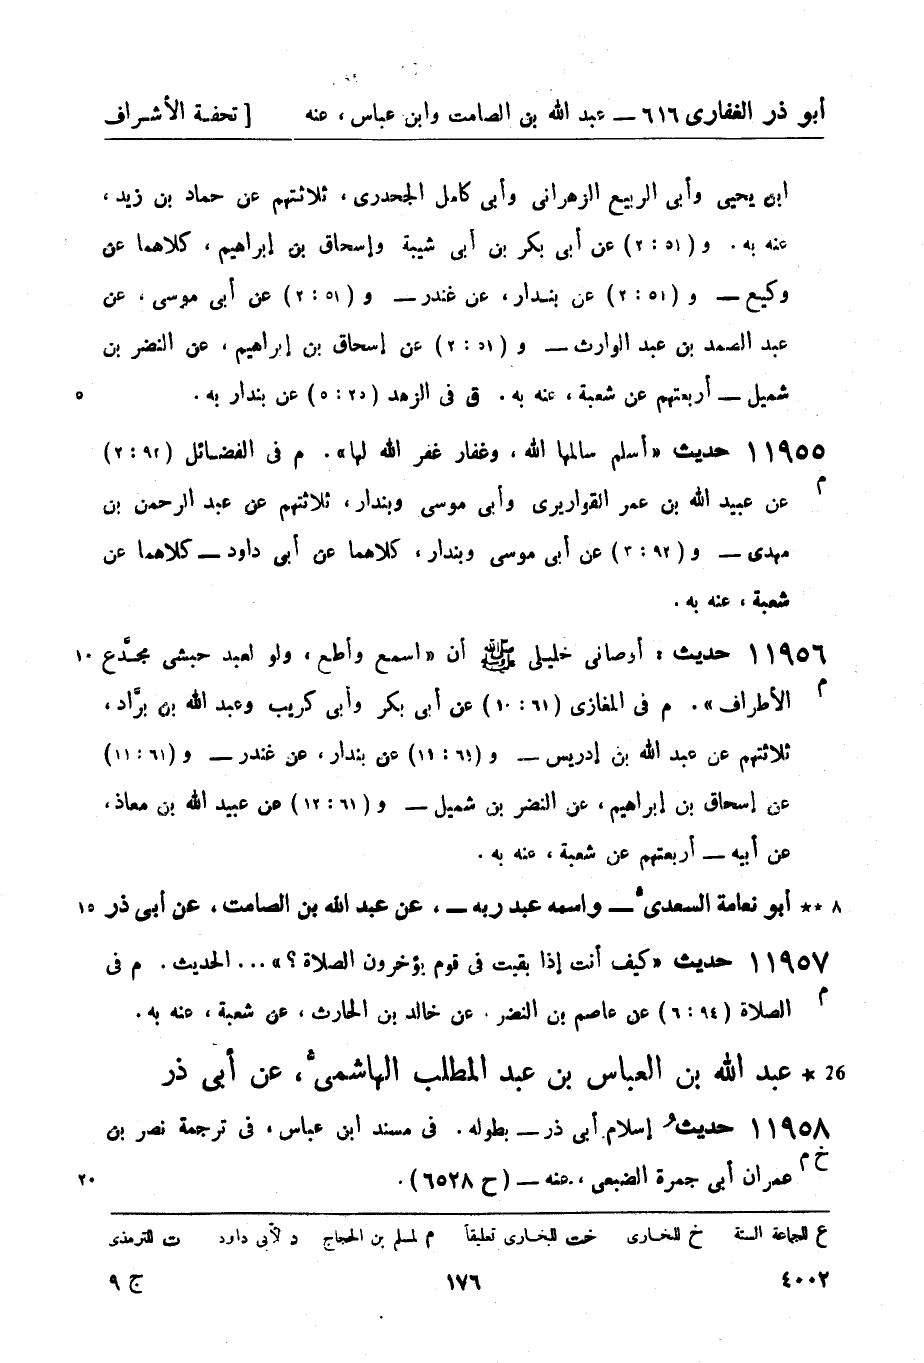 أبو ذر الغفارى ٦١٦ — عبد الله بن الصامت وابن عباس ، عنه [ تحفة الأشراف
ابن يحيى وأبى الربيع الزهرانى وأبى كامل الجحدرى ، ثلاثتهم عن حماد بن زيد ،
عنه به . و ( ٥١ : ٢ ) عن أبى بكر بن أبى شيبة وإسحاق بن إبراهيم ، كلاهما عن
وكيع — و ( ٥١ : ٢ ) عن بندار ، عن غندر — و ( ٥١ : ٢ ) عن أبى موسى ، عن
عبد الصمد بن عبد الوارث — و ( ٥١ : ٢ ) عن إسحاق بن إبراهيم ، عن النضر بن
شميل — أربعتهم عن شعبة ، عنه به . ق فى الزهد ( ٢٥ : ٥ ) عن بندار به . ٥
١١٩٥٥ حديث « أسلم سالمها الله ، وغفار غفر الله لها » . م فى الفضائل ( ٩٢ : ٢ )
م عن عبيد الله بن عمر القواريرى وأبى موسى وبندار ، ثلاثتهم عن عبد الرحمن بن
مهدى — و ( ٩٢ : ٣ ) عن أبى موسى وبندار ، كلاهما عن أبى داود — كلاهما عن
شعبة ، عنه به .
١١٩٥٦ حديث : أوصانى خليلى ﷺ أن « اسمع وأطع ، ولو لعبد حبشى مجدَّع ١٠
م الأطراف » . م فى المغازى ( ٦١ : ١٠ ) عن أبى بكر وأبى كريب وعبد الله بن برَّاد ،
ثلاثتهم عن عبد الله بن إدريس — و ( ٦١ : ١١ ) عن بندار ، عن غندر — و ( ٦١ : ١١ )
عن إسحاق بن إبراهيم ، عن النضر بن شميل — و ( ٦١ : ١٢ ) عن عبيد الله بن معاذ ،
عن أبيه — أربعتهم عن شعبة ، عنه به .
٨ ** أبو نعامة السعدى — واسمه عبد ربه — ، عن عبد الله بن الصامت ، عن أبى ذر ١٥
١١٩٥٧ حديث « كيف أنت إذا بقيت فى قوم يؤخرون الصلاة ؟ » ... الحديث . م فى
م الصلاة ( ٩٤ : ٦ ) عن عاصم بن النضر . عن خالد بن الحارث ، عن شعبة ، عنه به .
26 * عبد الله بن العباس بن عبد المطلب الهاشمى ، عن أبى ذر
١١٩٥٨ حديث إسلام أبى ذر — بطوله . فى مسند ابن عباس ، فى ترجمة نصر بن
خ م عمران أبى جمرة الضبعى ، عنه — ( ح ٦٥٢٨ ) . ٢٠
ع للجماعة الستة خ للبخارى خت للبخارى تعليقاً م لمسلم بن الحجاج د لأبى داود ت للترمذى
٤٠٠٢ ١٧٦ ج ٩